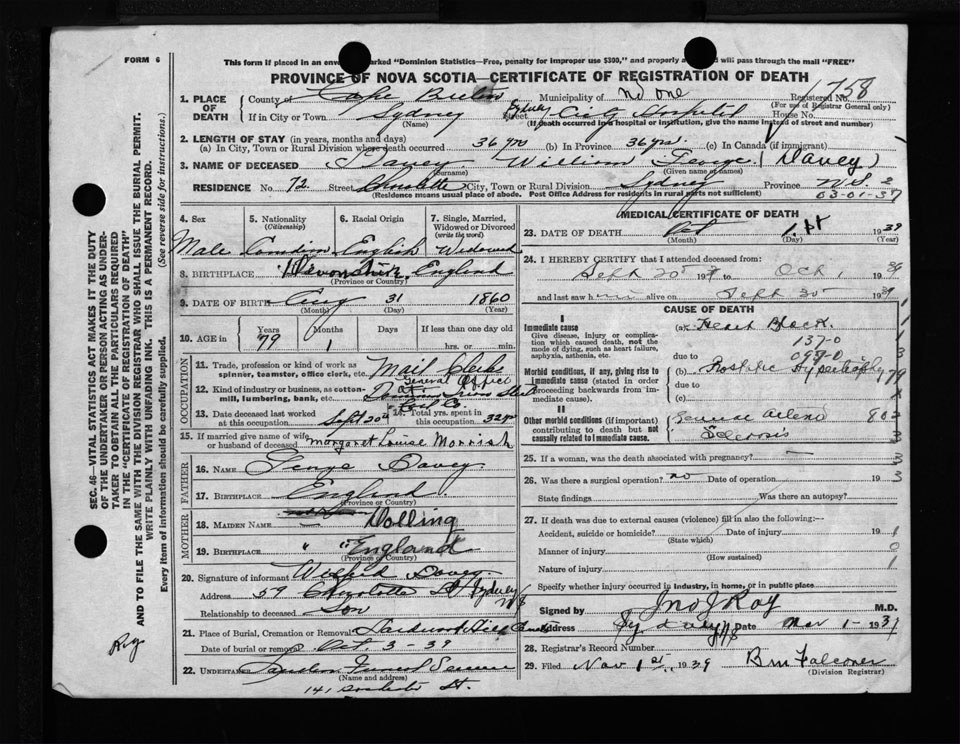 FORM 6
This form if placed in an env arked "Dominion Statistics—Free, penalty for improper use $300," and properly a will pass through the mail "FREE"
PROVINCE OF NOVA SCOTIA—CERTIFICATE OF REGISTRATION OF DEATH
Registered No. 758
(For use of Registrar General only)
1. PLACE OF DEATH
County of Cape Breton Municipality of
If in City or Town Sydney Street City Hospital
(Name) (If death occurred in a hospital or institution, give the name instead of street and number)
2. LENGTH OF STAY (in years, months and days)
(a) In City, Town or Rural Division where death occurred 36 yrs (b) In Province 36 yrs. (c) In Canada (if immigrant)
3. NAME OF DECEASED Davey William George (Davey)
(Surname) (Given name or names)
RESIDENCE No. 72 Street City, Town or Rural Division Sydney Province N.S.
(Residence means usual place of abode. Post Office Address for residents in rural parts not sufficient)
03-01-37
4. Sex Male
5. Nationality (Citizenship) Canadian
6. Racial Origin English
7. Single, Married, Widowed or Divorced (write the word) Widowed
8. BIRTHPLACE Devonshire England
(Province or Country)
9. DATE OF BIRTH Aug 31 1860
(Month) (Day) (Year)
10. AGE in Years 79 Months 1 Days If less than one day old hrs. or min.
OCCUPATION
11. Trade, profession or kind of work as spinner, teamster, office clerk, etc. Mail Clerk
12. Kind of industry or business, as cotton-mill, lumbering, bank, etc. General Office
Dominion Iron & Steel
13. Date deceased last worked at this occupation Sept 20th
14. Total yrs. spent in this occupation 32 yrs
15. If married give name of wife or husband of deceased Margaret Louise Morrish
FATHER
16. NAME George Davey
17. BIRTHPLACE England
(Province or Country)
MOTHER
18. MAIDEN NAME Dolling
19. BIRTHPLACE " " England
(Province or Country)
20. Signature of informant Wilfred Davey
Address 59 Charlotte St Sydney NS
Relationship to deceased Son
21. Place of Burial, Cremation or Removal Hardwood Hill
Date of burial or remo Oct. 3-39
22. UNDERTAKER Funeral Service
(Name and address)
141 St.
MEDICAL CERTIFICATE OF DEATH
23. DATE OF DEATH Oct 1st 1939
(Month) (Day) (Year)
24. I HEREBY CERTIFY that I attended deceased from:
Sept 20 39 to Oct 1 1939
and last saw him alive on Sept 30 1939
CAUSE OF DEATH
I
Immediate cause
Give disease, injury or complication which caused death, not the mode of dying, such as heart failure, asphyxia, asthenia, etc.
(a) Heart Block.
137-0
due to 095-0
Morbid conditions, if any, giving rise to immediate cause (stated in order proceeding backwards from immediate cause).
(b) Prostatic Hypertrophy
due to
(c)
II
Other morbid conditions (important) contributing to death but not causally related to immediate cause.
General Arterio Sclerosis
25. If a woman, was the death associated with pregnancy? —
26. Was there a surgical operation? no Date of operation 193
State findings Was there an autopsy?
27. If death was due to external causes (violence) fill in also the following:—
Accident, suicide or homicide? Date of injury 19
(State which)
Manner of injury
(How sustained)
Nature of injury
Specify whether injury occurred in industry, in home, or in public place
Signed by Jno J Roy M.D.
Address Sydney NS Date 1- 193
28. Registrar's Record Number
29. Filed Nov 1st 1939 B M Falconer
(Division Registrar)
SEC. 46—VITAL STATISTICS ACT MAKES IT THE DUTY OF THE UNDERTAKER OR PERSON ACTING AS UNDERTAKER TO OBTAIN ALL THE PARTICULARS REQUIRED IN THE "CERTIFICATE OF REGISTRATION OF DEATH"
AND TO FILE THE SAME WITH THE DIVISION REGISTRAR WHO SHALL ISSUE THE BURIAL PERMIT.
WRITE PLAINLY WITH UNFADING INK. THIS IS A PERMANENT RECORD.
Every item of information should be carefully supplied. (See reverse side for instructions.)